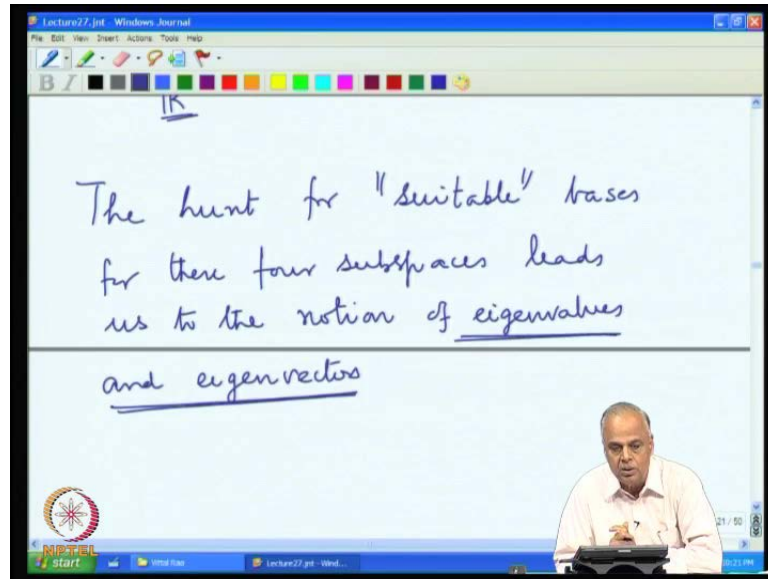 Lecture27.jnt - Windows Journal
File Edit View Insert Actions Tools Help
B I
IR
The hunt for "suitable" bases
for these four subspaces leads
us to the notion of eigenvalues
and eigenvectors
21 / 50
NPTEL
start Vittal Rao Lecture27.jnt - Wind...